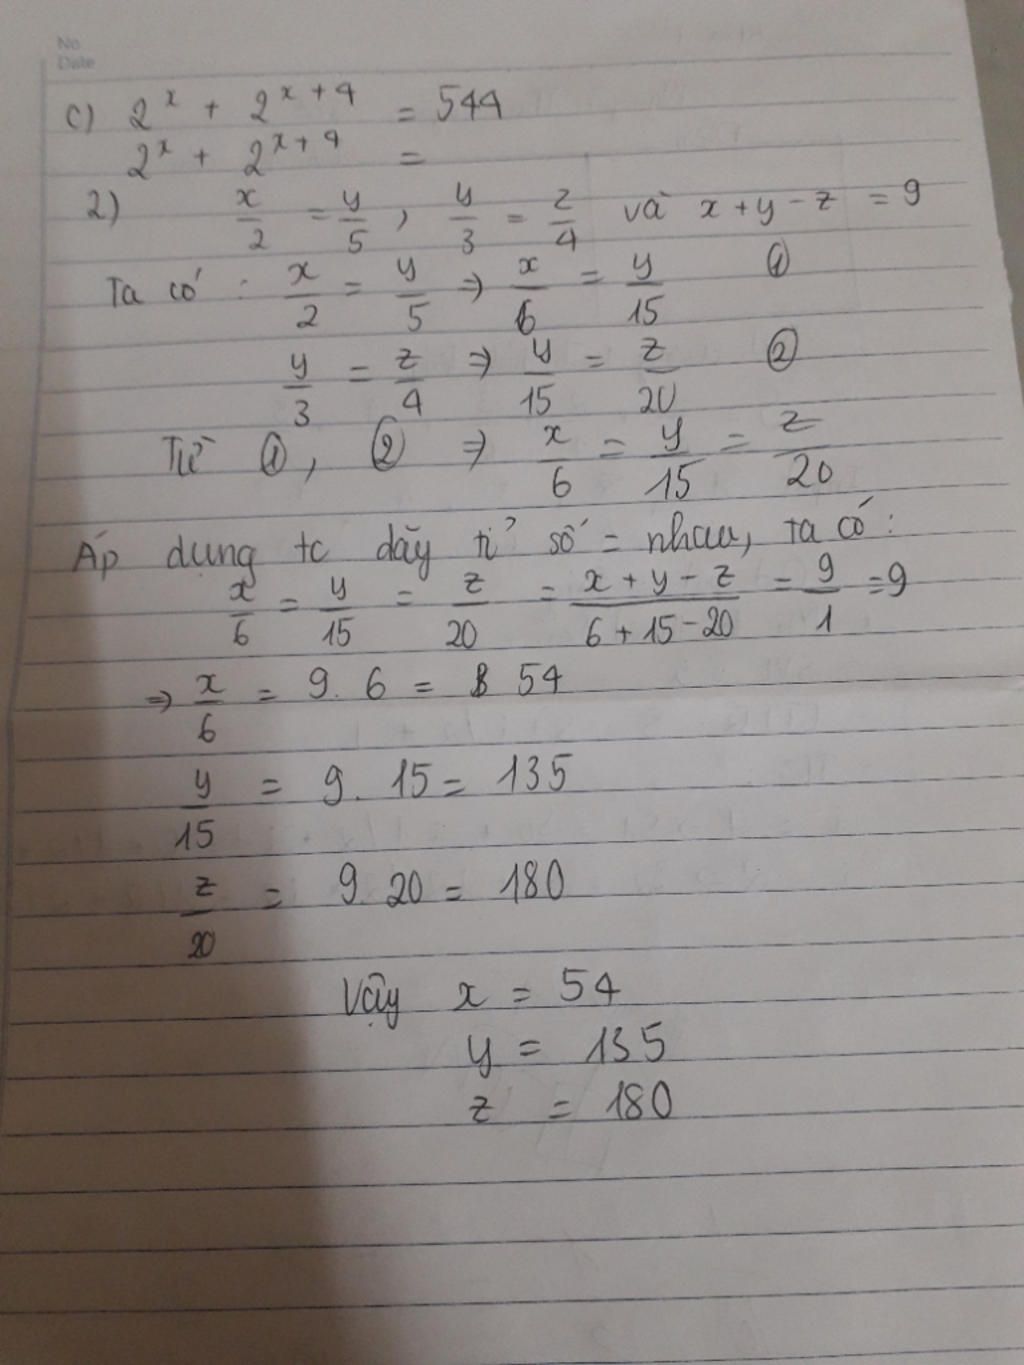 No
Date
c) 2^x + 2^{x+4} = 544
2^x + 2^{x+4} =
2) x/2 = y/5, y/3 = z/4 và x + y - z = 9
Ta có: x/2 = y/5 ⇒ x/6 = y/15 ①
y/3 = z/4 ⇒ y/15 = z/20 ②
Từ ①, ② ⇒ x/6 = y/15 = z/20
Áp dụng tc dãy tỉ số = nhau, ta có:
x/6 = y/15 = z/20 = (x + y - z)/(6 + 15 - 20) = 9/1 = 9
⇒ x/6 = 9. 6 = 54
y/15 = 9. 15 = 135
z/20 = 9 20 = 180
Vậy x = 54
y = 135
z = 180